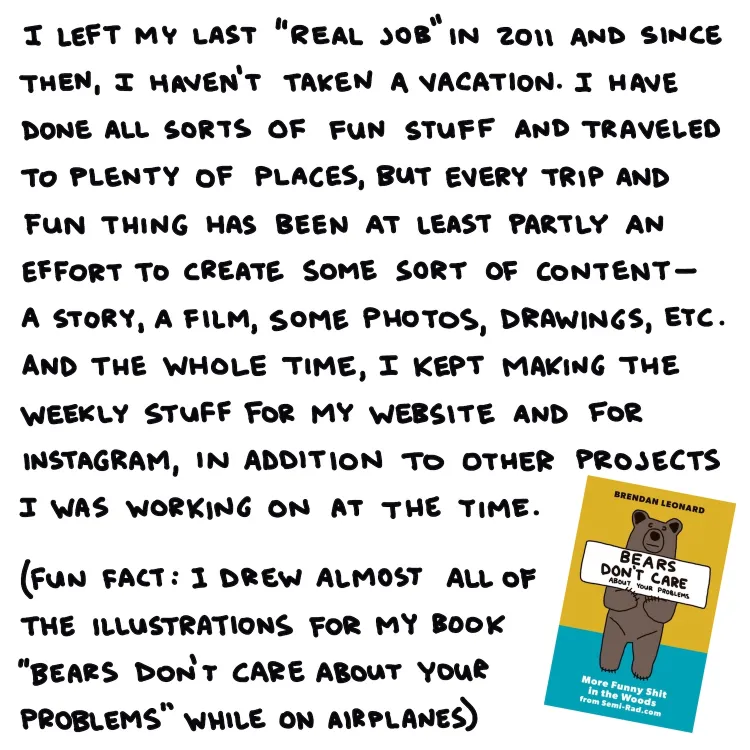 I LEFT MY LAST "REAL JOB" IN 2011 AND SINCE
THEN, I HAVEN'T TAKEN A VACATION. I HAVE
DONE ALL SORTS OF FUN STUFF AND TRAVELED
TO PLENTY OF PLACES, BUT EVERY TRIP AND
FUN THING HAS BEEN AT LEAST PARTLY AN
EFFORT TO CREATE SOME SORT OF CONTENT—
A STORY, A FILM, SOME PHOTOS, DRAWINGS, ETC.
AND THE WHOLE TIME, I KEPT MAKING THE
WEEKLY STUFF FOR MY WEBSITE AND FOR
INSTAGRAM, IN ADDITION TO OTHER PROJECTS
I WAS WORKING ON AT THE TIME.
(FUN FACT: I DREW ALMOST ALL OF
THE ILLUSTRATIONS FOR MY BOOK
"BEARS DON'T CARE ABOUT YOUR
PROBLEMS" WHILE ON AIRPLANES)
BRENDAN LEONARD
BEARS
DON'T CARE
ABOUT YOUR PROBLEMS
More Funny Shit
in the Woods
from Semi-Rad.com